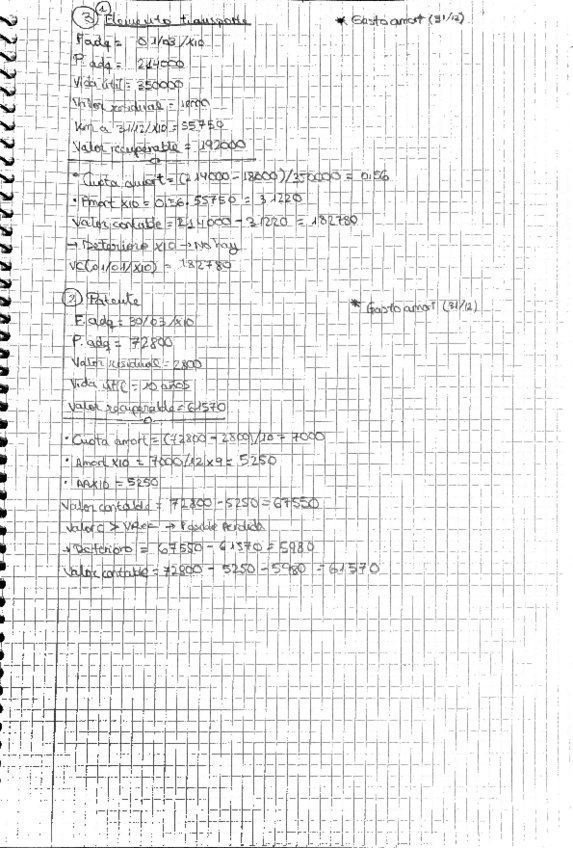 ③ ① Elemento transporte
* Gasto amort (31/12)
F adq = 01/03/X10
P. adq = 214000
Vida útil = 350000
Valor residual = 18000
Km a 31/12/X10 = 55750
Valor recuperable = 192000
• Cuota amort = (214000 - 18000)/350000 = 0,56
• Amort X10 = 0,56 · 55750 = 31220
Valor contable = 214000 - 31220 = 182780
→ Deterioro X10 → No hay
VC(01/01/X10) = 182780
② Patente
* Gasto amort (31/12)
F. adq = 30/03/X10
P. adq = 72800
Valor residual = 2800
Vida útil = 10 años
Valor recuperable = 61570
• Cuota amort = (72800 - 2800)/10 = 7000
• Amort X10 = 7000/12 x 9 = 5250
• AAX10 = 5250
Valor contable = 72800 - 5250 = 67550
Valor C > VRec → Posible Pérdida
→ Deterioro = 67550 - 61570 = 5980
Valor contable = 72800 - 5250 - 5980 = 61570